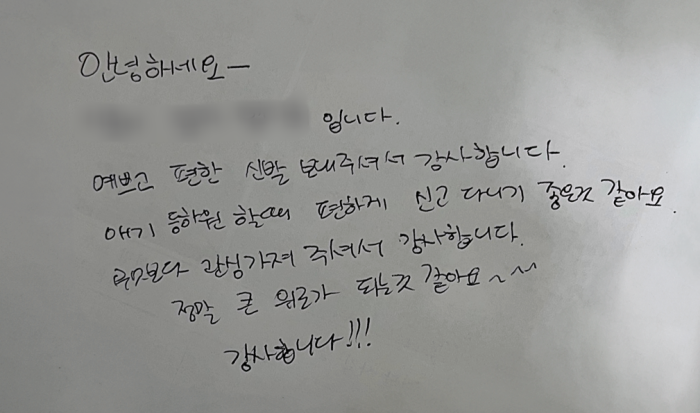 안녕하세요-
입니다.
예쁘고 편한 신발 보내주셔서 감사합니다.
애기 등하원 할때 편하게 신고 다니기 좋은것 같아요.
무엇보다 관심가져 주셔서 감사합니다.
정말 큰 위로가 되는것 같아요~~~
감사합니다!!!